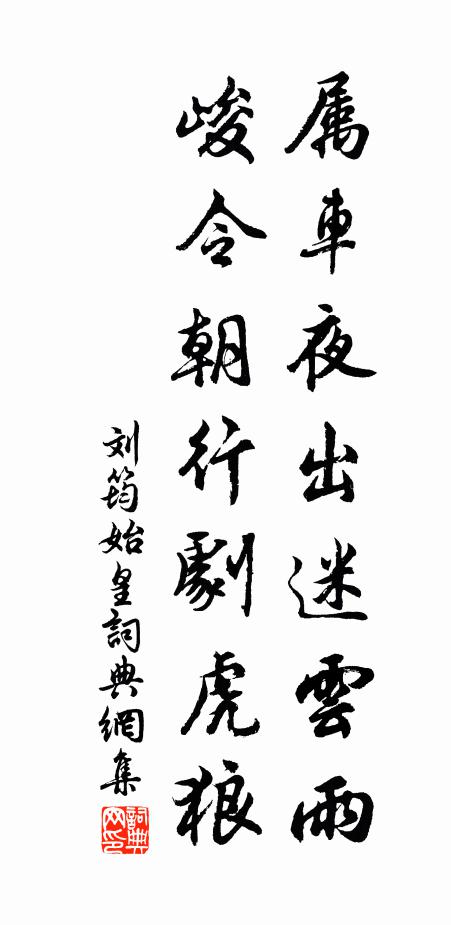 属車夜出迷雲雨
峻令朝行劇虎狼
刘筠始皇詞典網集
詞典网印